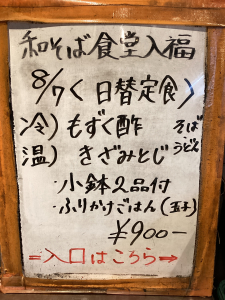 和そば食堂入福
8/7〈日替定食〉
冷)もずく酢 そば
温)きざみとじ うどん
・小鉢2品付
・ふりかけごはん(玉子)
¥900-
⇒入口はこちら⇒